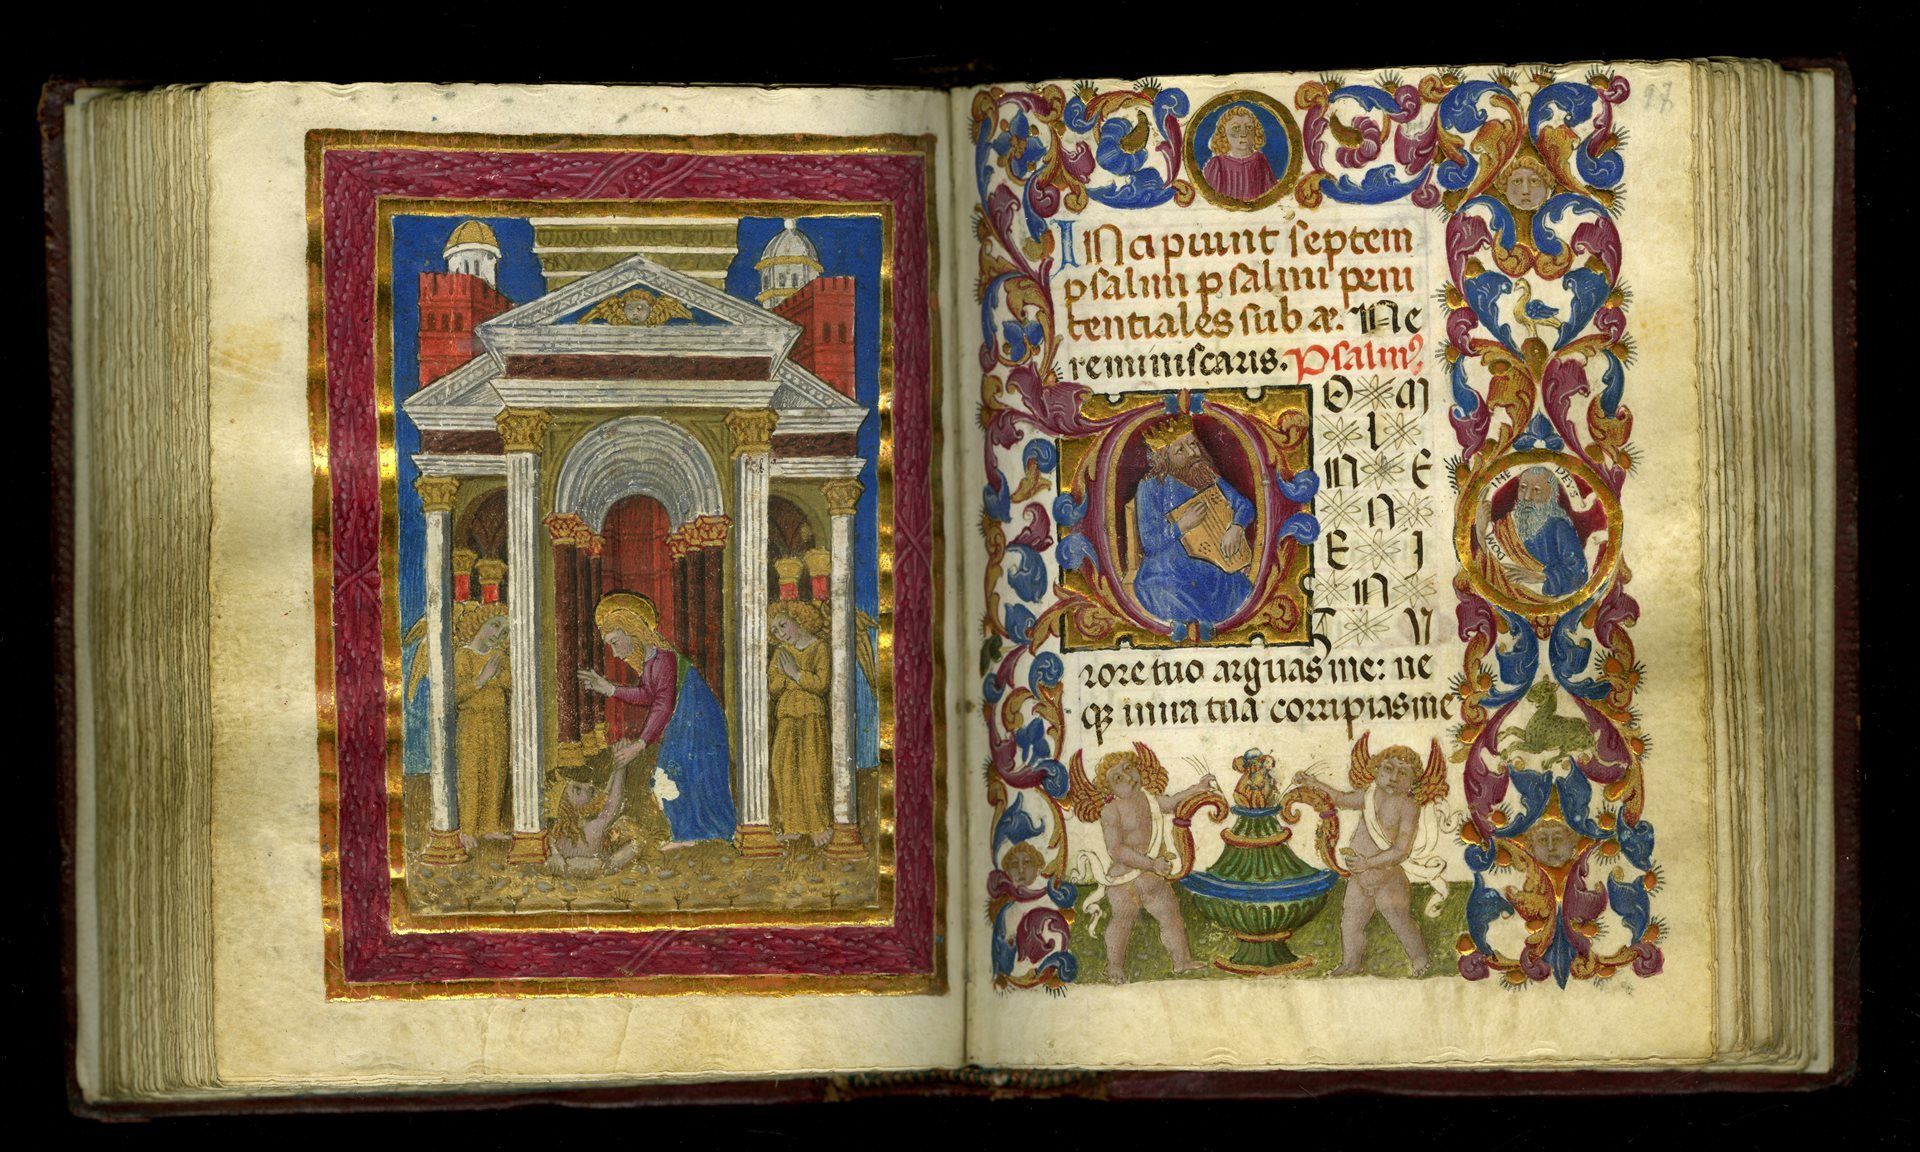 97
Incipiunt septem
psalmi psalmi peni
tentiales sub ae. Ne
reminiscaris. Psalmꝰ
D M
I
N E
N
E I
N
F V
rore tuo arguas me: ne
qꝫ in ira tua corripias me
DOMINE DEVS